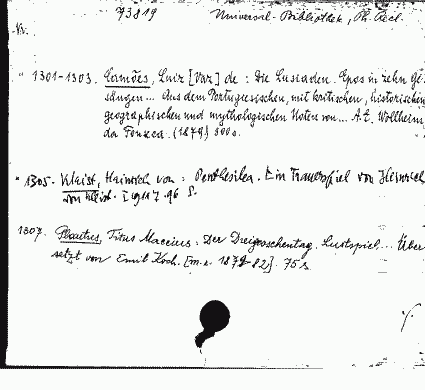 73819 Universal-Bibliothek, Ph. Recl.
Nr.
1301-1303. Camões, Luiz [Vaz] de : Die Lusiaden. Epos in zehn Ge-
sängen... Aus dem Portugiesischen, mit kritischen, historischen
geographischen und mythologischen Noten von... A. E. Wollheim
da Fonseca. (1879) 300 s.
* 1305. Kleist, Heinrich von : Penthesilea. Ein Trauerspiel von Heinrich
von Kleist. [1911]. 96 S.
1307. Plautus, Titus Maccius : Der Dreigroschentag. Lustspiel... Über
setzt von Emil Koch. 1879-82]. 75 s.